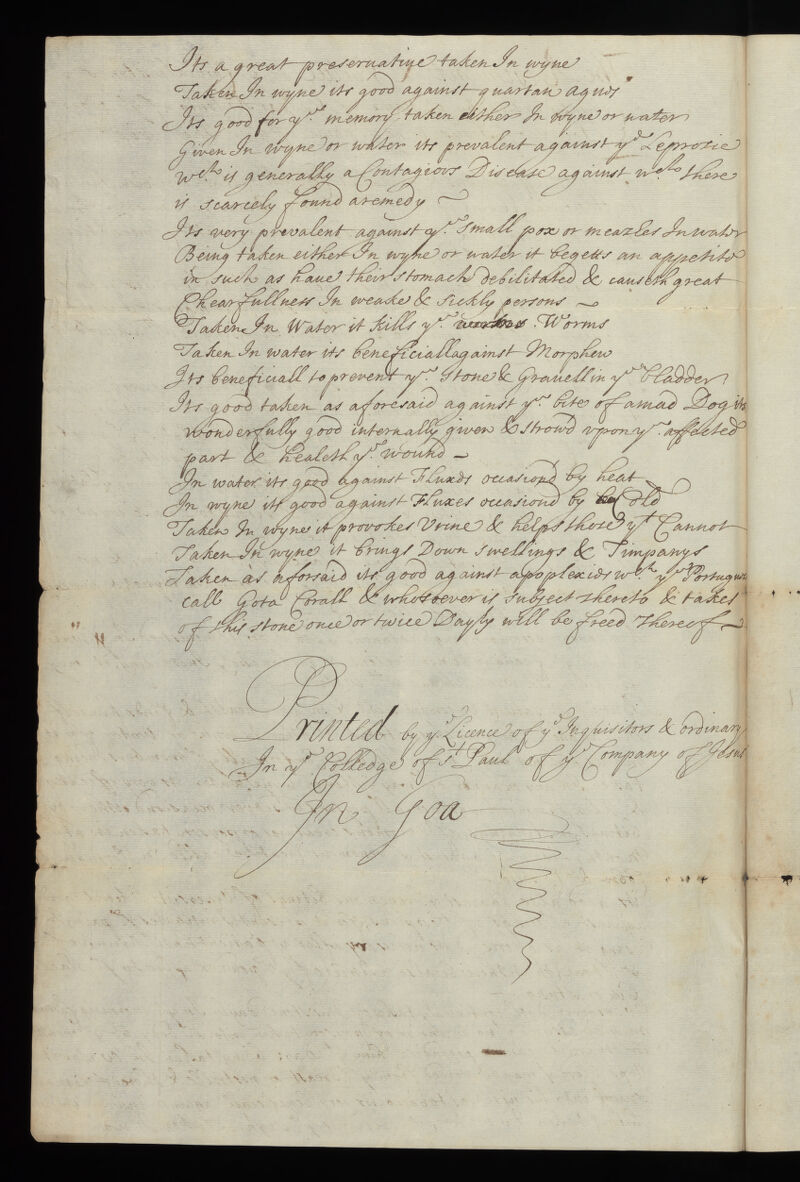 Its a great preseruatiue taken In wyne
Taken In wyne its good against quartan agues
Its good for yr. memory taken either In wyne or water
Given In wyne or water its prevalent against ye Leprosie
wch. is generally a Contagious Disease against wch. there
is scarcely found a remedy ~
Its very prevalent against ye. small pox or meazles In water
Being taken either In wyne or water it begetts an appetite
in such as haue their stomach debilitated & causeth great
Chearfullness In weake & sickly persons ~
Taken In Water it kills ye. Worms
Taken In water its beneficiall against Morphew
Its beneficiall to prevent ye. Stone & Gravell in ye. bladder
Its good taken as aforesaid against ye. bite of a mad Dog its
wonderfully good internally given & strowd vpon ye. affected
part & healeth ye. wound ~
In water its good against Fluxes occasiond by heat
In wyne its good against Fluxes occasiond by Cold
Taken In wyne it provokes Vrine & helps those yt Cannot
Taken In wyne it brings Down swellings & Timpanys
Taken as aforsaid its good against apoplexies wch. ye Portugues
call Gota Corall & whosoever is subject thereto & takes
of this stone once or twice Dayly will be freed thereof ~
Printed by ye. Licence of ye. Inquisitors & ordinary
In ye Colledge of St. Paul of ye. Company of Jesus
In Goa